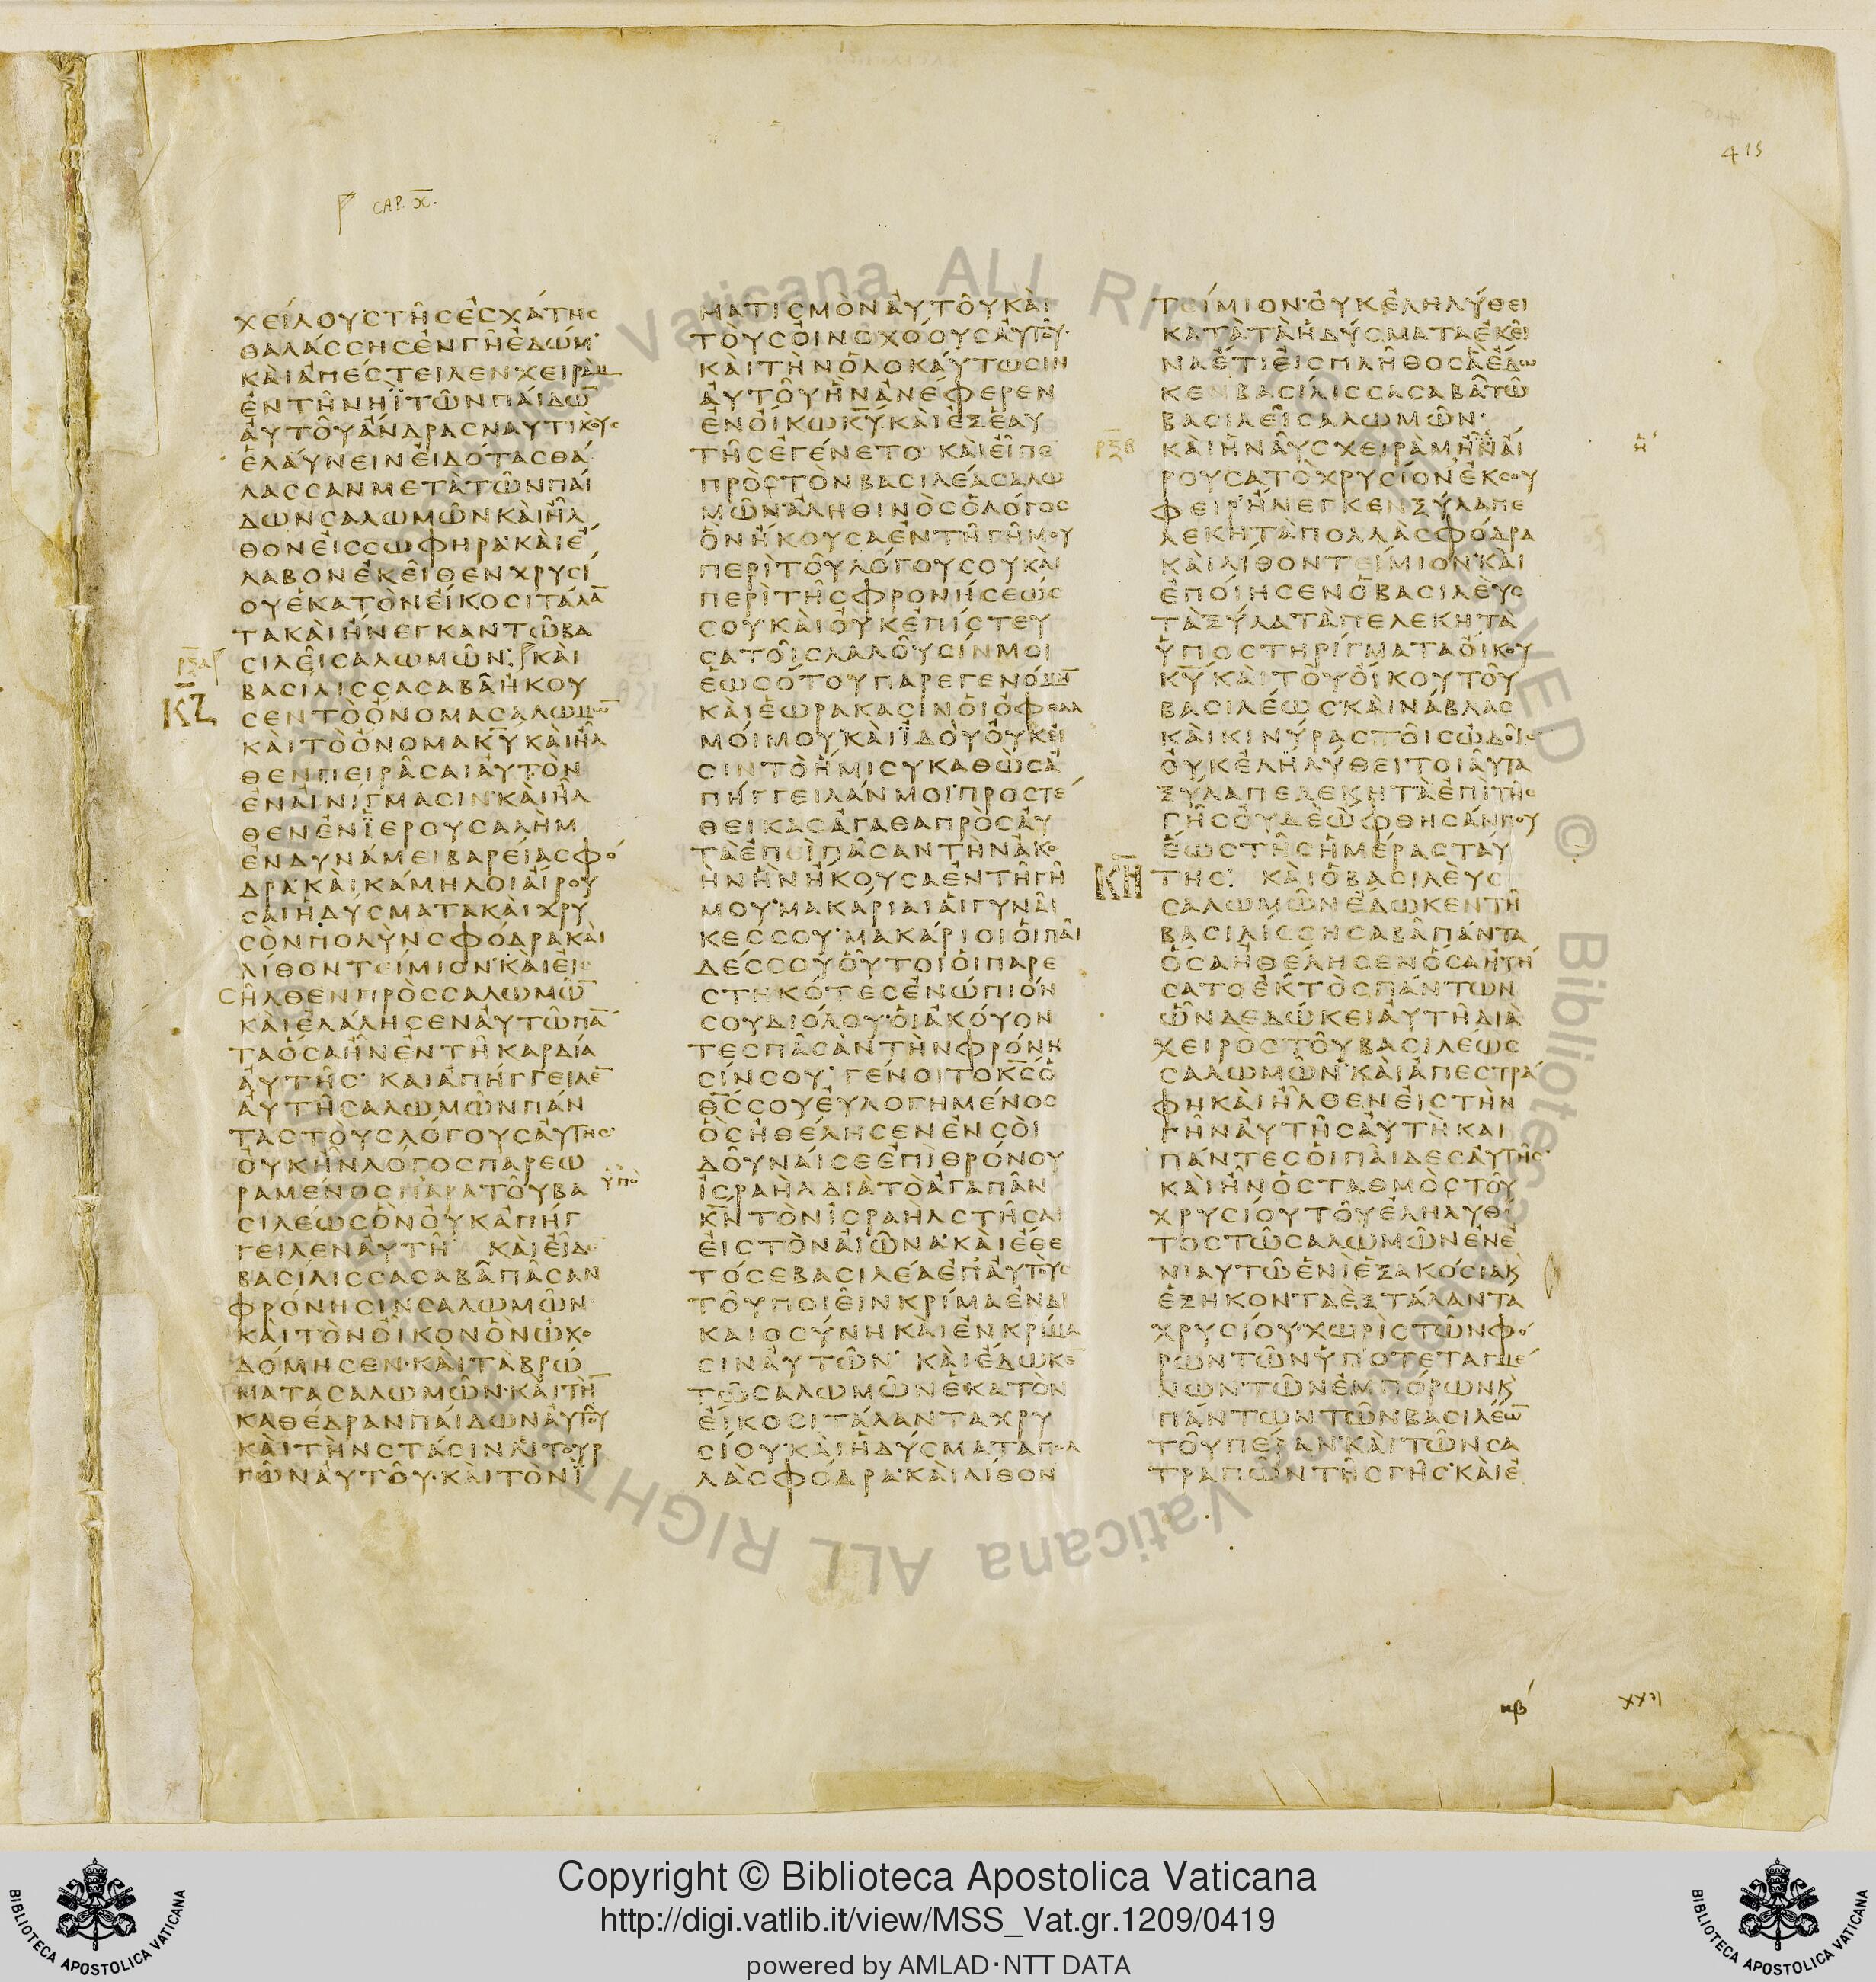 415
CAP. X.
ΧΕΙΛΟΥΣΤΗΣΕΣΧΑΤΗΣ
ΘΑΛΑΣΣΗΣΕΝΓΗΕΔΩΜ
ΚΑΙΑΠΕΣΤΕΙΛΕΝΧΕΙΡΑΜ
ΕΝΤΗΝΗΙΤΩΝΠΑΙΔΩ̅
ΑΥΤΟΥΑΝΔΡΑΣΝΑΥΤΙΚΟΥΣ
ΕΛΑΥΝΕΙΝΕΙΔΟΤΑΣΘΑ
ΛΑΣΣΑΝΜΕΤΑΤΩΝΠΑΙ
ΔΩΝΣΑΛΩΜΩΝΚΑΙΗΛ
ΘΟΝΕΙΣΣΩΦΗΡΑΚΑΙΕ
ΛΑΒΟΝΕΚΕΙΘΕΝΧΡΥΣΙ
ΟΥΕΚΑΤΟΝΕΙΚΟΣΙΤΑΛΑ̅
ΤΑΚΑΙΗΝΕΓΚΑΝΤΩΒΑ
ΣΙΛΕΙΣΑΛΩΜΩΝ: ΚΑΙ
ΒΑΣΙΛΙΣΣΑΣΑΒΑΗΚΟΥ
ΚΖ ΣΕΝΤΟΟΝΟΜΑΣΑΛΩΜΩ̅
ΚΑΙΤΟΟΝΟΜΑΚ̅Υ̅ΚΑΙΗΛ
ΘΕΝΠΕΙΡΑΣΑΙΑΥΤΟΝ
ΕΝΑΙΝΙΓΜΑΣΙΝ·ΚΑΙΗΛ
ΘΕΝΕΝΙΕΡΟΥΣΑΛΗΜ
ΕΝΔΥΝΑΜΕΙΒΑΡΕΙΑΣΦΟ
ΔΡΑ·ΚΑΙΚΑΜΗΛΟΙΑΙΡΟΥ
ΣΑΙΗΔΥΣΜΑΤΑΚΑΙΧΡΥ
ΣΟΝΠΟΛΥΝΣΦΟΔΡΑΚΑΙ
ΛΙΘΟΝΤΕΙΜΙΟΝ·ΚΑΙΕΙΣ
ΗΛΘΕΝΠΡΟΣΣΑΛΩΜΩ̅
ΚΑΙΕΛΑΛΗΣΕΝΑΥΤΩΠΑ̅
ΤΑΟΣΑΗΝΕΝΤΗΚΑΡΔΙΑ
ΑΥΤΗΣ· ΚΑΙΑΠΗΓΓΕΙΛΕ̅
ΑΥΤΗΣΑΛΩΜΩΝΠΑΝ
ΤΑΣΤΟΥΣΛΟΓΟΥΣΑΥΤΗΣ·
ΟΥΚΗΝΛΟΓΟΣΠΑΡΕΩ
ΡΑΜΕΝΟΣΠΑΡΑΤΟΥΒΑ ὑπὸ
ΣΙΛΕΩΣΟΝΟΥΚΑΠΗΓ
ΓΕΙΛΕΝΑΥΤΗ ΚΑΙΕΙΔΕ
ΒΑΣΙΛΙΣΣΑΣΑΒΑΠΑΣΑΝ
ΦΡΟΝΗΣΙΝΣΑΛΩΜΩΝ·
ΚΑΙΤΟΝΟΙΚΟΝΟΝΩΚΟ
ΔΟΜΗΣΕΝ·ΚΑΙΤΑΒΡΩ
ΜΑΤΑΣΑΛΩΜΩΝ·ΚΑΙΤΗ̅
ΚΑΘΕΔΡΑΝΠΑΙΔΩΝΑΥΤΟΥ
ΚΑΙΤΗΝΣΤΑΣΙΝΛΙΤΟΥΡ
ΓΩΝΑΥΤΟΥ·ΚΑΙΤΟΝΙ
ΜΑΤΙΣΜΟΝΑΥΤΟΥΚΑΙ
ΤΟΥΣΟΙΝΟΧΟΟΥΣΑΥΤΟΥ·
ΚΑΙΤΗΝΟΛΟΚΑΥΤΩΣΙΝ
ΑΥΤΟΥΗΝΑΝΕΦΕΡΕΝ
ΕΝΟΙΚΩΚ̅Υ̅·ΚΑΙΕΞΕΑΥ
ΤΗΣΕΓΕΝΕΤΟ· ΚΑΙΕΙΠΕ
ΠΡΟΣΤΟΝΒΑΣΙΛΕΑΣΑΛΩ
ΜΩΝ·ΑΛΗΘΙΝΟΣΟΛΟΓΟΣ
ΟΝΗΚΟΥΣΑΕΝΤΗΓΗΜΟΥ
ΠΕΡΙΤΟΥΛΟΓΟΥΣΟΥΚΑΙ
ΠΕΡΙΤΗΣΦΡΟΝΗΣΕΩΣ
ΣΟΥΚΑΙΟΥΚΕΠΙΣΤΕΥ
ΣΑΤΟΙΣΛΑΛΟΥΣΙΝΜΟΙ
ΕΩΣΟΤΟΥΠΑΡΕΓΕΝΟΜΗ̅
ΚΑΙΕΩΡΑΚΑΣΙΝΟΙΟΦΘΑΛ
ΜΟΙΜΟΥ·ΚΑΙΙΔΟΥΟΥΚΕΙ
ΣΙΝΤΟΗΜΙΣΥΚΑΘΩΣΑ
ΠΗΓΓΕΙΛΑΝΜΟΙ·ΠΡΟΣΤΕ
ΘΕΙΚΑΣΑΓΑΘΑΠΡΟΣΑΥ
ΤΑΕΠΙΠΑΣΑΝΤΗΝΑΚΟ
ΗΝΗΝΗΚΟΥΣΑΕΝΤΗΓΗ
ΜΟΥ·ΜΑΚΑΡΙΑΙΑΙΓΥΝΑΙ
ΚΕΣΣΟΥ·ΜΑΚΑΡΙΟΙΟΙΠΑΙ
ΔΕΣΣΟΥΟΥΤΟΙΟΙΠΑΡΕ
ΣΤΗΚΟΤΕΣΕΝΩΠΙΟΝ
ΣΟΥΔΙΟΛΟΥ·ΟΙΑΚΟΥΟΝ
ΤΕΣΠΑΣΑΝΤΗΝΦΡΟΝΗ
ΣΙΝΣΟΥ· ΓΕΝΟΙΤΟΚ̅Σ̅Ο
Θ̅Σ̅ΣΟΥΕΥΛΟΓΗΜΕΝΟΣ
ΟΣΗΘΕΛΗΣΕΝΕΝΣΟΙ
ΔΟΥΝΑΙΣΕΕΠΙΘΡΟΝΟΥ
ΙΣΡΑΗΛΔΙΑΤΟΑΓΑΠΑΝ
Κ̅Ν̅ΤΟΝΙΣΡΑΗΛΣΤΗΣΑΙ
ΕΙΣΤΟΝΑΙΩΝΑ·ΚΑΙΕΘΕ
ΤΟΣΕΒΑΣΙΛΕΑΕΠΑΥΤΟΥΣ
ΤΟΥΠΟΙΕΙΝΚΡΙΜΑΕΝΔΙ
ΚΑΙΟΣΥΝΗΚΑΙΕΝΚΡΙΜΑ
ΣΙΝΑΥΤΩΝ· ΚΑΙΕΔΩΚΕ̅
ΤΩΣΑΛΩΜΩΝΕΚΑΤΟΝ
ΕΙΚΟΣΙΤΑΛΑΝΤΑΧΡΥ
ΣΙΟΥ·ΚΑΙΗΔΥΣΜΑΤΑΠΟΛ
ΛΑΣΦΟΔΡΑ·ΚΑΙΛΙΘΟΝ
ΤΕΙΜΙΟΝ·ΟΥΚΕΛΗΛΥΘΕΙ
ΚΑΤΑΤΑΗΔΥΣΜΑΤΑΕΚΕΙ
ΝΑΕΤΙΕΙΣΠΛΗΘΟΣΑΕΔΩ
ΚΕΝΒΑΣΙΛΙΣΣΑΣΑΒΑΤΩ
ΒΑΣΙΛΕΙΣΑΛΩΜΩΝ·
ΚΑΙΗΝΑΥΣΧΕΙΡΑΜΗΑΙ
ΡΟΥΣΑΤΟΧΡΥΣΙΟΝΕΚΣΟΥ
ΦΕΙΡ·ΗΝΕΓΚΕΝΞΥΛΑΠΕ
ΛΕΚΗΤΑΠΟΛΛΑΣΦΟΔΡΑ
ΚΑΙΛΙΘΟΝΤΕΙΜΙΟΝ·ΚΑΙ
ΕΠΟΙΗΣΕΝΟΒΑΣΙΛΕΥΣ
ΤΑΞΥΛΑΤΑΠΕΛΕΚΗΤΑ
ΥΠΟΣΤΗΡΙΓΜΑΤΑΟΙΚΟΥ
Κ̅Υ̅ΚΑΙΤΟΥΟΙΚΟΥΤΟΥ
ΒΑΣΙΛΕΩΣ·ΚΑΙΝΑΒΛΑΣ
ΚΑΙΚΙΝΥΡΑΣΤΟΙΣΩΔΟΙΣ
ΟΥΚΕΛΗΛΥΘΕΙΤΟΙΑΥΤΑ
ΞΥΛΑΠΕΛΕΚΗΤΑΕΠΙΤΗΣ
ΓΗΣΟΥΔΕΩΦΘΗΣΑΝΠΟΥ
ΕΩΣΤΗΣΗΜΕΡΑΣΤΑΥ
ΚΗ ΤΗΣ: ΚΑΙΟΒΑΣΙΛΕΥΣ
ΣΑΛΩΜΩΝΕΔΩΚΕΝΤΗ
ΒΑΣΙΛΙΣΣΗΣΑΒΑΠΑΝΤΑ
ΟΣΑΗΘΕΛΗΣΕΝΟΣΑΗΤΗ
ΣΑΤΟΕΚΤΟΣΠΑΝΤΩΝ
ΩΝΔΕΔΩΚΕΙΑΥΤΗΔΙΑ
ΧΕΙΡΟΣΤΟΥΒΑΣΙΛΕΩΣ
ΣΑΛΩΜΩΝ·ΚΑΙΑΠΕΣΤΡΑ
ΦΗΚΑΙΗΛΘΕΝΕΙΣΤΗΝ
ΓΗΝΑΥΤΗΣΑΥΤΗΚΑΙ
ΠΑΝΤΕΣΟΙΠΑΙΔΕΣΑΥΤΗΣ·
ΚΑΙΗΝΟΣΤΑΘΜΟΣΤΟΥ
ΧΡΥΣΙΟΥΤΟΥΕΛΗΛΥΘΟ
ΤΟΣΤΩΣΑΛΩΜΩΝΕΝΕ
ΝΙΑΥΤΩΕΝΙΕΞΑΚΟΣΙΑΚϗ
ΕΞΗΚΟΝΤΑΕΞΤΑΛΑΝΤΑ
ΧΡΥΣΙΟΥ·ΧΩΡΙΣΤΩΝΦΟ
ΡΩΝΤΩΝΥΠΟΤΕΤΑΓΜΕ
ΝΩΝ·ΤΩΝΕΜΠΟΡΩΝϗ
ΠΑΝΤΩΝΤΩΝΒΑΣΙΛΕΩ̅
ΤΟΥΠΕΡΑΝ·ΚΑΙΤΩΝΣΑ
ΤΡΑΠΩΝΤΗΣΓΗΣ·ΚΑΙΕ
κβ XXII
Copyright © Biblioteca Apostolica Vaticana
http://digi.vatlib.it/view/MSS_Vat.gr.1209/0419
powered by AMLAD·NTT DATA
BIBLIOTECA APOSTOLICA VATICANA
BIBLIOTECA APOSTOLICA VATICANA